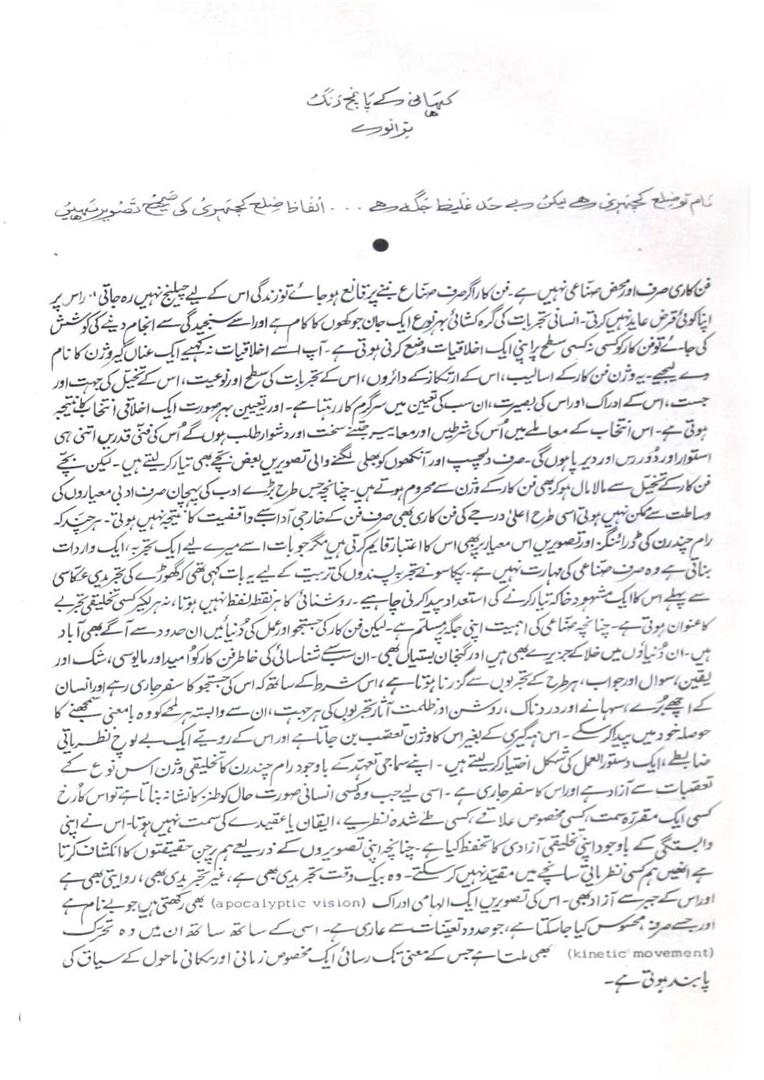 کہانی کے پانچ رنگ
نام تو ضلع کچہری ہے لیکن بے حد غلیظ جگہ ہے ... الفاظ ضلع کچہری کی صحیح تصویر نہیں
●
فن کاری صرف اور محض صنّاعی نہیں ہے۔ فن کار اگر صرف صنّاع بننے پر قانع ہو جائے تو زندگی اس کے لیے چیلنج نہیں رہ جاتی اور اس پر
اپنا کوئی قرض عاید نہیں کرتی۔ انسانی تجربات کی گرہ کشائی بہر نوع ایک جان جوکھوں کا کام ہے اور اسے سنجیدگی سے انجام دینے کی کوشش
کی جائے تو فن کار کو کسی نہ کسی سطح پر اپنی ایک اخلاقیات وضع کرنی ہوتی ہے۔ آپ اسے اخلاقیات نہ کہیے ایک عناں گیر وژن کا نام
دے لیجیے۔ یہ وژن فن کار کے اسالیب، اس کے ارتکاز کے دائروں، اس کے تجربات کی سطح اور نوعیت، اس کے تخیل کی جہت اور
جست، اس کے ادراک اور اس کی بصیرت، ان سب کی تعیین میں سرگرم کار رہتا ہے۔ اور یہ تعیین بہر صورت ایک اخلاقی انتخاب کا نتیجہ
ہوتی ہے۔ اس انتخاب کے معاملے میں اُس کی شرطیں اور معاییر جتنے سخت اور دشوار طلب ہوں گے اُس کی فنّی قدریں اتنی ہی
استوار اور دُور رس اور دیر پا ہوں گی۔ صرف دلچسپ اور آنکھوں کو بھلی لگنے والی تصویریں بعض بچّے بھی تیار کر لیتے ہیں۔ لیکن بچّے
فن کار کے تخیّل سے مالا مال ہو کر بھی فن کار کے وژن سے محروم ہوتے ہیں۔ چنانچہ جس طرح بڑے ادب کی پہچان صرف ادبی معیاروں کی
وساطت سے ممکن نہیں ہوتی اسی طرح اعلیٰ درجے کی فن کاری بھی صرف فن کے خارجی آداب سے واقفیت کا نتیجہ نہیں ہوتی۔ ہر چند کہ
رام چندرن کی ڈرائنگز اور تصویریں اس معیار پر بھی اس کا اعتبار قایم کرتی ہیں مگر جو بات اسے میرے لیے ایک تجربہ، ایک واردات
بناتی ہے وہ صرف صنّاعی کی مہارت نہیں ہے۔ پکاسو نے تجرید پسندوں کی تربیت کے لیے یہ بات کہی تھی کہ گھوڑے کی تجریدی عکاسی
سے پہلے اس کا ایک مشہود خاکہ تیار کرنے کی استعداد پیدا کرنی چاہیے۔ روشنائی کا ہر نقطہ لفظ نہیں ہوتا، نہ ہر لکیر کسی تخلیقی تجربے
کا عنوان ہوتی ہے۔ چنانچہ صنّاعی کی اہمیت اپنی جگہ پر مسلّم ہے۔ لیکن فن کار کی جستجو اور عمل کی دُنیائیں ان حدود سے آگے بھی آباد
ہیں۔ ان دُنیاؤں میں خلا کے جزیرے بھی ہیں اور گنجان بستیاں بھی۔ ان سب سے شناسائی کی خاطر فن کار کو امید اور مایوسی، شک اور
یقین، سوال اور جواب، ہر طرح کے تجربوں سے گزرنا ہوتا ہے، اس شرط کے ساتھ کہ اس کی جستجو کا سفر جاری رہے اور انسان
کے اچھے بُرے، سہانے اور درد ناک، روشن اور ظلمت آثار تجربوں کی ہر جہت، ان سے وابستہ ہر لمحے کو وہ بامعنی سمجھنے کا
حوصلہ خود میں پیدا کر سکے۔ اس ہمہ گیری کے بغیر اس کا وژن تعصّب بن جاتا ہے اور اس کے رویّے ایک بے لوچ نظریاتی
ضابطے، ایک دستور العمل کی شکل اختیار کر لیتے ہیں۔ اپنے سماجی تعہّد کے باوجود رام چندرن کا تخلیقی وژن اس نوع کے
تعصّبات سے آزاد ہے اور اس کا سفر جاری ہے۔ اسی لیے جب وہ کسی انسانی صورت حال کو طنز کا نشانہ بناتا ہے تو اس کا رُخ
کسی ایک مقررہ سمت، کسی مخصوص علاقے، کسی طے شدہ نظریے، ایقان یا عقیدے کی سمت نہیں ہوتا۔ اس نے اپنی
وابستگی کے باوجود اپنی تخلیقی آزادی کا تحفظ کیا ہے۔ چنانچہ اپنی تصویروں کے ذریعے ہم پر جن حقیقتوں کا انکشاف کرتا
ہے انھیں ہم کسی نظریاتی سانچے میں مقیّد نہیں کر سکتے۔ وہ بیک وقت تجریدی بھی ہے، غیر تجریدی بھی، روایتی بھی ہے
اور اس کے جبر سے آزاد بھی۔ اس کی تصویریں ایک الہامی ادراک (apocalyptic vision) بھی رکھتی ہیں جو بے نام ہے
اور جسے صرف محسوس کیا جا سکتا ہے، جو حدود و تعینات سے عاری ہے۔ اسی کے ساتھ ساتھ ان میں وہ تحرّک
(kinetic movement) بھی ملتا ہے جس کے معنی تک رسائی ایک مخصوص زمانی اور مکانی ماحول کے سیاق کی
پابند ہوتی ہے۔